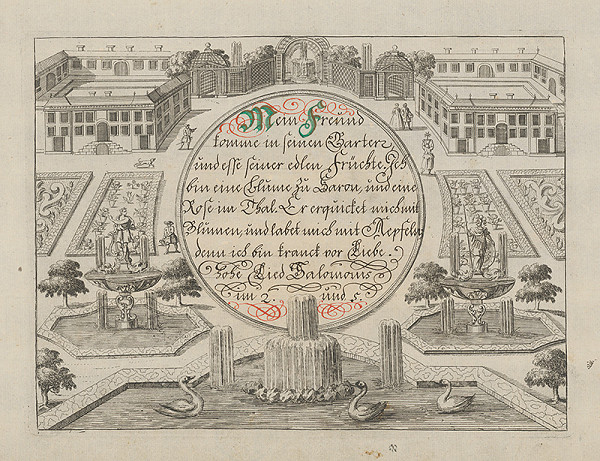 Mein Freund
komme in seinen Garten
und esse seiner edlen Früchte, Ich
bin eine Blume zu Saron, und eine
Rose im Thal. Er erquicket mich mit
Blümen, und labet mich mit Aepfeln
denn ich bin kranck vor Liebe.
Hohe Lied Salomonis
im 2. und 5.